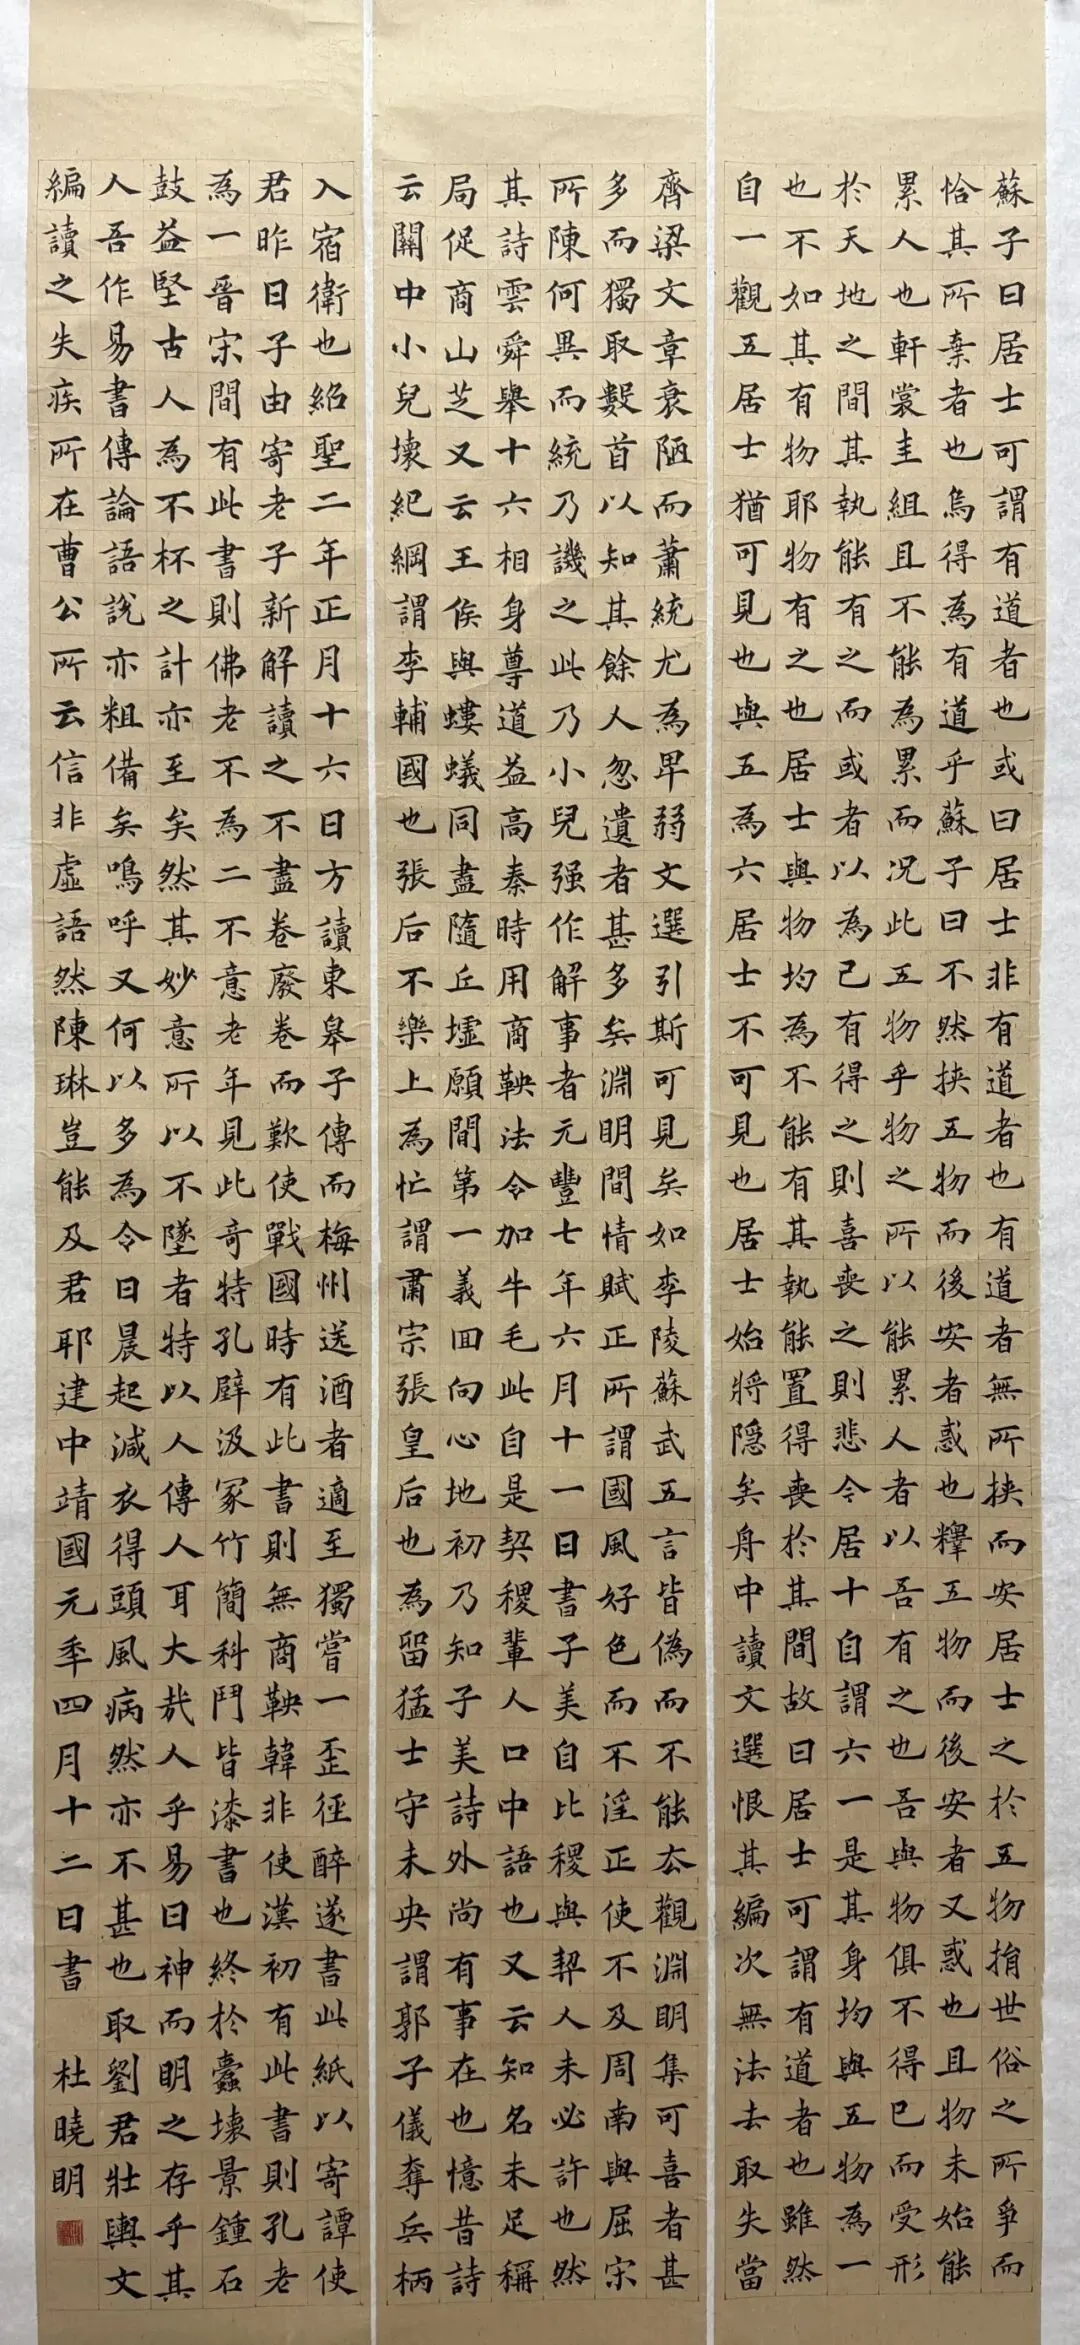 蘇子曰居士可謂有道者也或曰居士非有道者也有道者無所挾而安居士之於五物捐世俗之所爭而
恰其所棄者也烏得為有道乎蘇子曰不然挾五物而後安者惑也釋五物而後安者又惑也且物未始能
累人也軒裳圭組且不能為累而況此五物乎物之所以能累人者以吾有之也吾與物俱不得已而受形
於天地之間其執能有之而或者以為己有得之則喜喪之則悲今居士自謂六一是其身均與五物為一
也不如其有物耶物有之也居士與物均為不能有其執能置得喪於其間故曰居士可謂有道者也雖然
自一觀五居士猶可見也與五為六居士不可見也居士始將隱矣舟中讀文選恨其編次無法去取失當
齊梁文章衰陋而蕭統尤為卑弱文選引斯可見矣如李陵蘇武五言皆偽而不能去觀淵明集可喜者甚
多而獨取數首以知其餘人忽遺者甚多矣淵明間情賦正所謂國風好色而不淫正使不及周南與屈宋
所陳何異而統乃譏之此乃小兒强作解事者元豐七年六月十一日書子美自比稷與契人未必許也然
其詩雲舜舉十六相身尊道益高秦時用商鞅法令加牛毛此自是契稷輩人口中語也又云知名未足稱
局促商山芝又云王侯與螻蟻同盡隨丘墟願聞第一義回向心地初乃知子美詩外尚有事在也憶昔詩
云關中小兒壞紀綱謂李輔國也張后不樂上為忙謂肅宗張皇后也為留猛士守未央謂郭子儀奪兵柄
入宿衛也紹聖二年正月十六日方讀東皋子傳而梅州送酒者適至獨嘗一歪徑醉遂書此紙以寄譚使
君昨日子由寄老子新解讀之不盡卷廢卷而歎使戰國時有此書則無商鞅韓非使漢初有此書則孔老
為一晉宋間有此書則佛老不為二不意老年見此奇特孔壁汲冢竹簡科鬥皆漆書也終於蠹壞景鍾石
鼓益堅古人為不杯之計亦至矣然其妙意所以不墜者特以人傳人耳大哉人乎易曰神而明之存乎其
人吾作易書傳論語說亦粗備矣鳴呼又何以多為令日晨起減衣得頭風病然亦不甚也取劉君壯輿文
編讀之失疾所在曹公所云信非虛語然陳琳豈能及君耶建中靖國元年四月十二日書
杜曉明